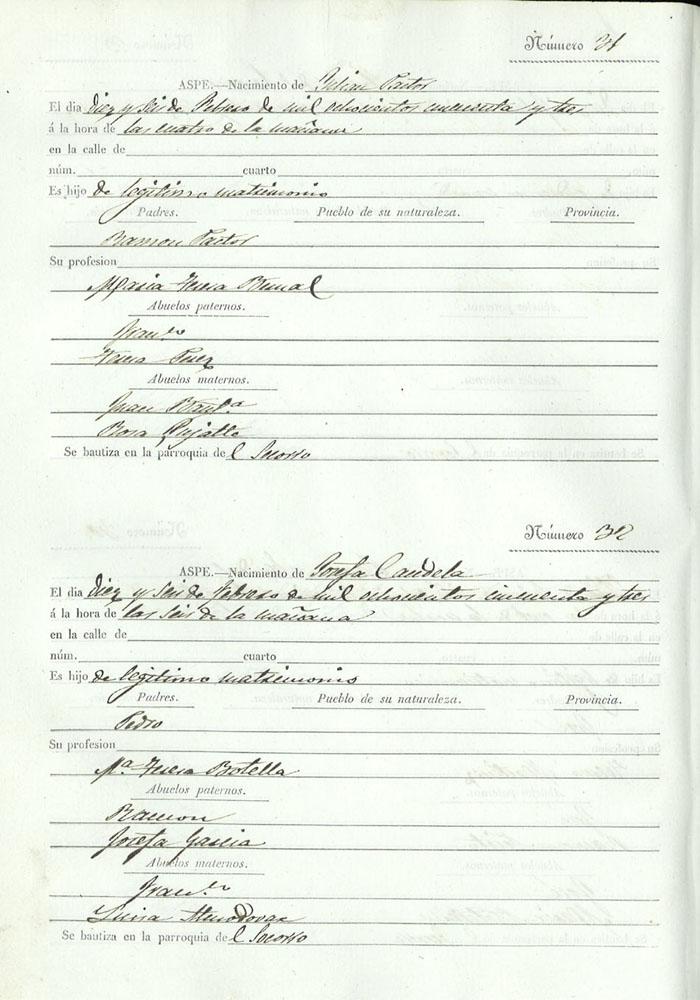 Número 31
ASPE.—Nacimiento de Julian Pastor
El dia diez y seis de Febrero de mil ochocientos cincuenta y tres
á la hora de las cuatro de la mañana
en la calle de
núm. cuarto
Es hijo de legitimo matrimonio
Padres. Pueblo de su naturaleza. Provincia.
Ramon Pastor
Su profesion
Maria Teresa Bernal
Abuelos paternos.
Fran.co
Teresa Perez
Abuelos maternos.
Juan Baut.a
Rosa Pujalte
Se bautiza en la parroquia de l Socorro
Número 32
ASPE.—Nacimiento de Josefa Candela
El dia diez y seis de Febrero de mil ochocientos cincuenta y tres
á la hora de las seis de la mañana
en la calle de
núm. cuarto
Es hijo de legitimo matrimonio
Padres. Pueblo de su naturaleza. Provincia.
Pedro
Su profesion
M.a Teresa Botella
Abuelos paternos.
Ramon
Josefa Garcia
Abuelos maternos.
Fran.co
Luisa Almodovar
Se bautiza en la parroquia de l Socorro